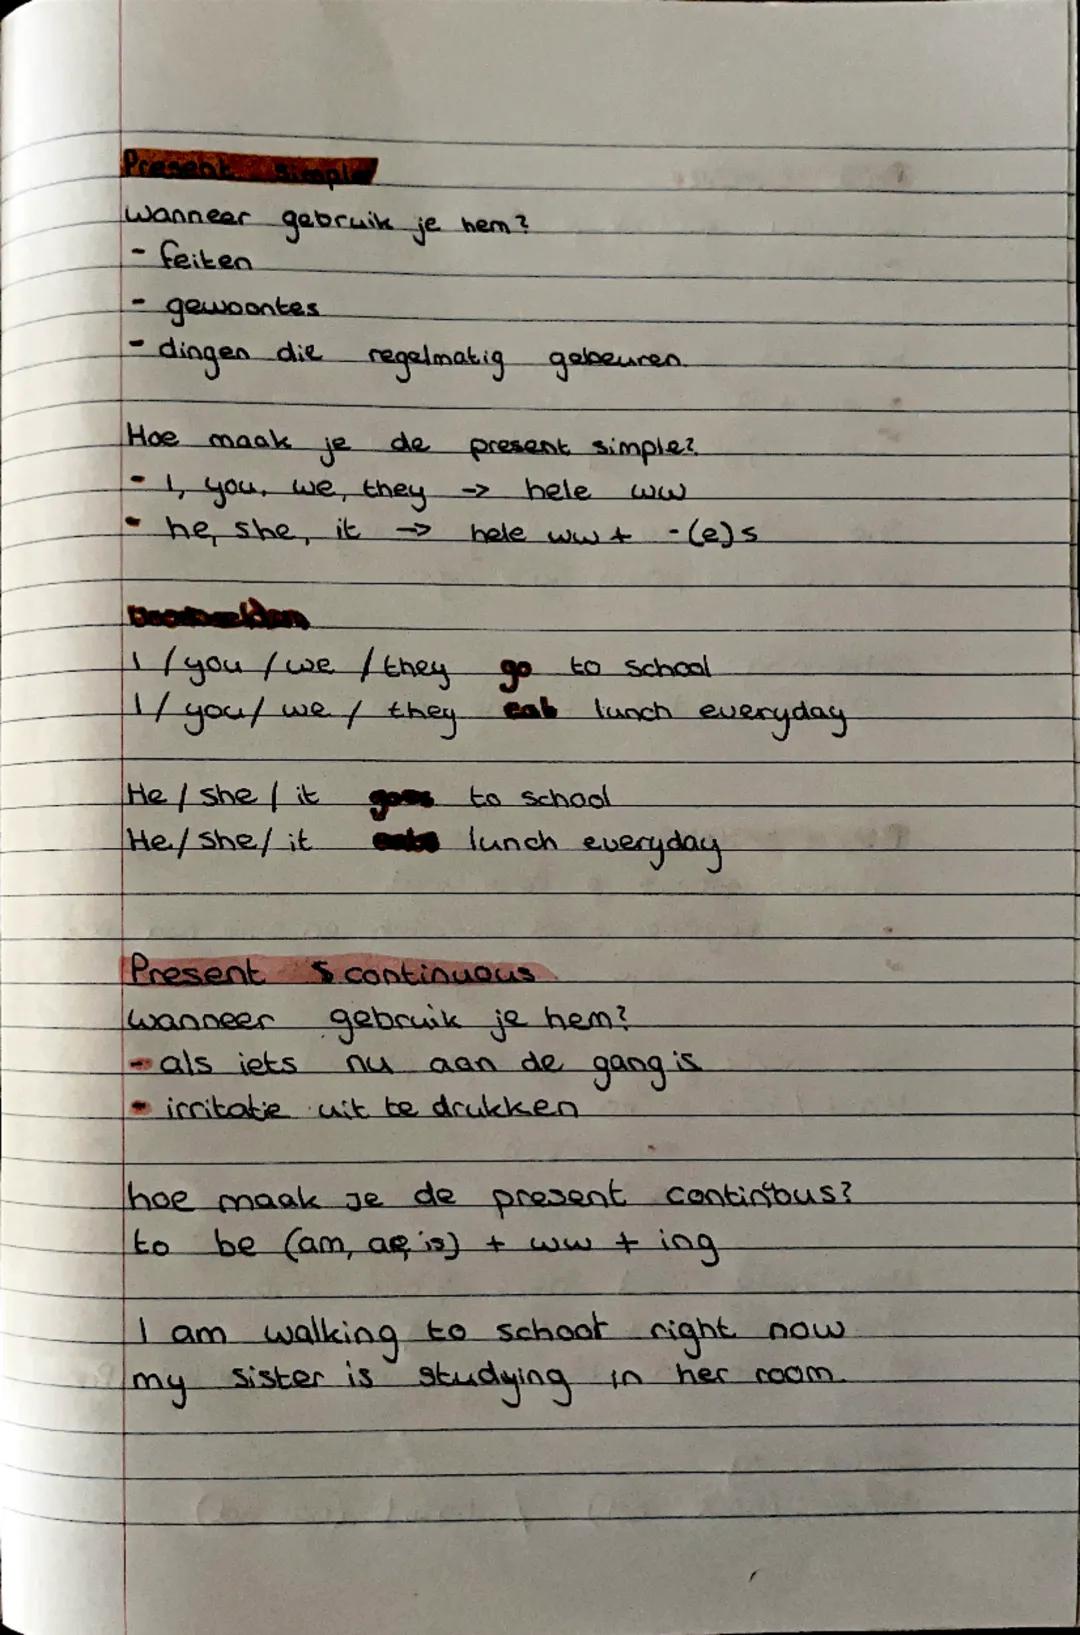 Present simple
wanneer gebruik je hem?
- feiten
- gewoontes
- dingen die regelmatig gebeuren.
Hoe maak je de present simple?
- I, you, we, they -> hele ww
- he, she, it -> hele ww + -(e)s
Voorbeelden
I / you / we / they go to school
I / you / we / they eat lunch everyday
He / she / it goes to school
He / she / it eats lunch everyday
Present continuous
wanneer gebruik je hem?
- als iets nu aan de gang is
- irritatie uit te drukken
hoe maak je de present continous?
to be (am, are, is) + ww + ing
I am walking to school right now
my sister is studying in her room.